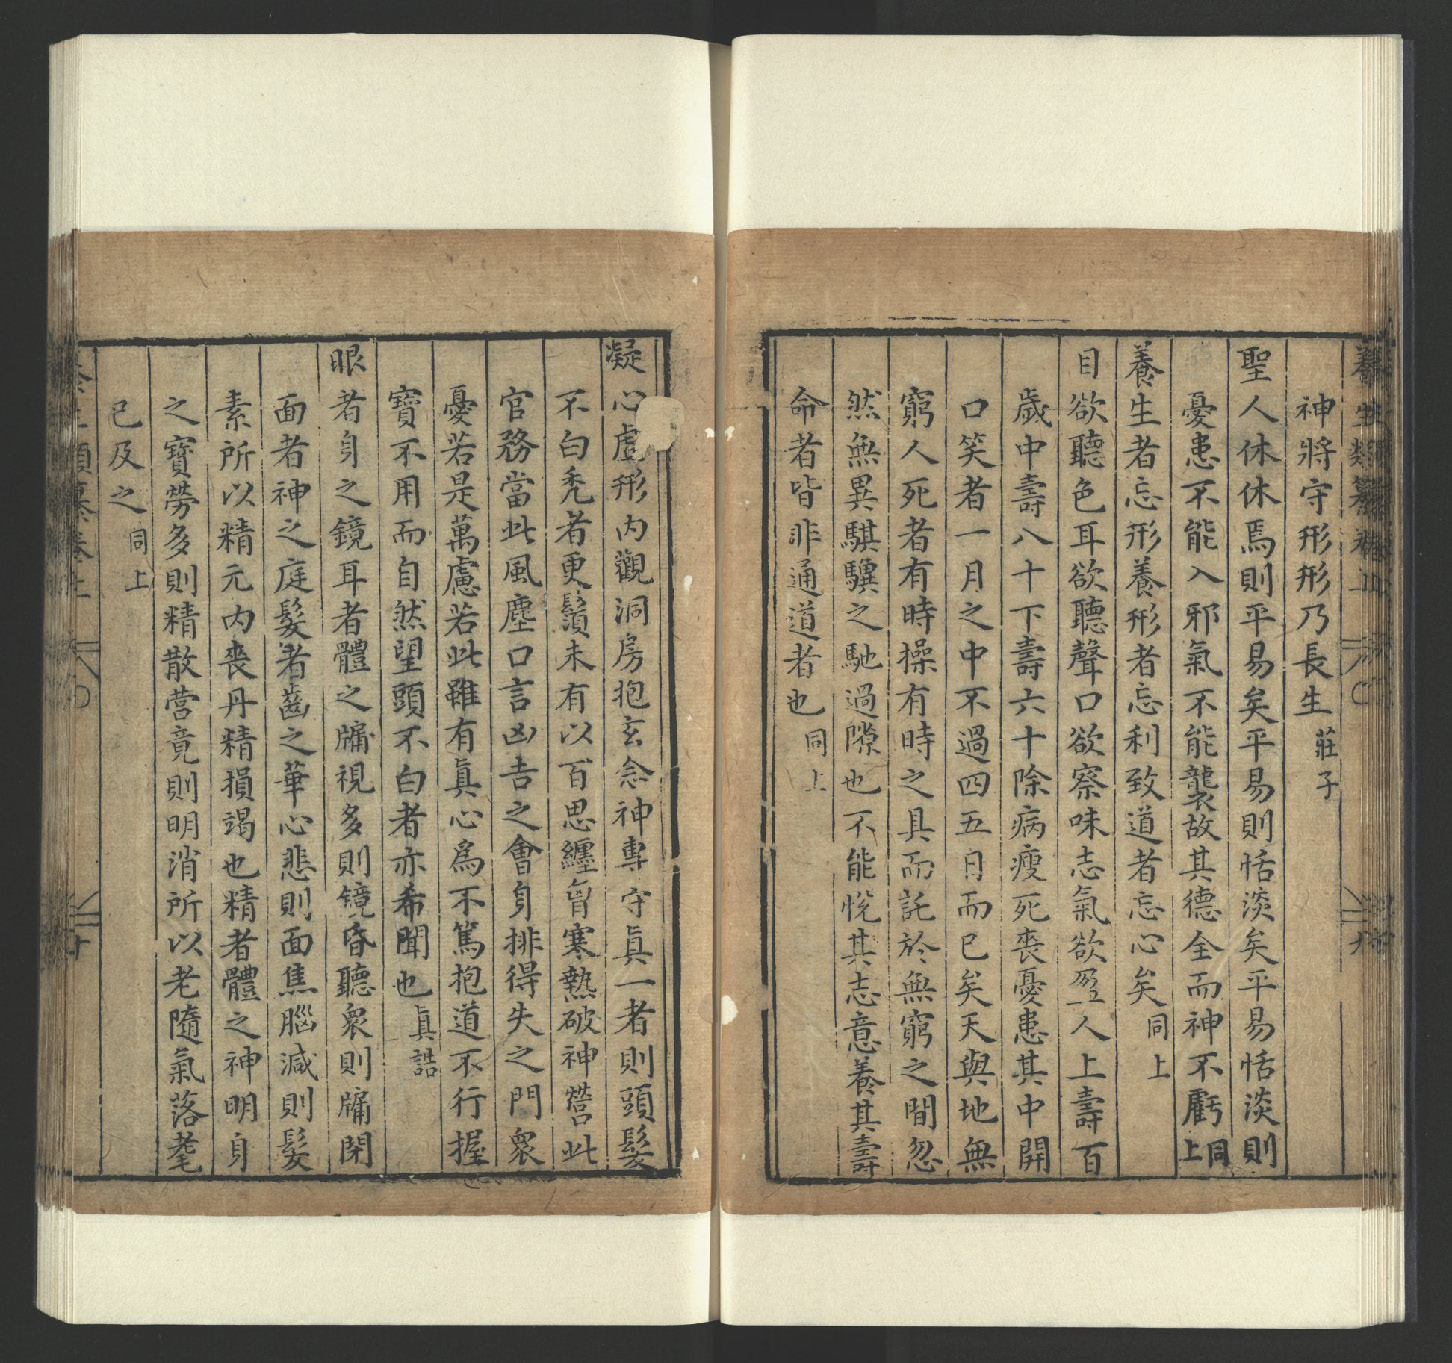 養生類纂卷上
九
神將守形形乃長生莊子
聖人休休焉則平易矣平易則恬淡矣平易恬淡則
憂患不能入邪氣不能襲故其德全而神不虧同上
養生者忘形養形者忘利致道者忘心矣同上
目欲聽色耳欲聽聲口欲察味志氣欲盈一人上壽百
歲中壽八十下壽六十除病瘦死喪憂患其中開
口笑者一月之中不過四五日而已矣天與地無
窮人死者有時操有時之具而託於無窮之間忽
然無異騏驥之馳過隙也不能悅其志意養其壽
命者皆非通道者也同上
凝心虛形內觀洞房抱玄念神專守真一者則頭髮
不白禿者更鬒未有以百思纏胷寒熱破神營此
官務當此風塵口言凶吉之會身排得失之門衆
憂若是萬慮若此雖有真心爲不篤抱道不行握
寶不用而自然望頭不白者亦希聞也真誥
眼者身之鏡耳者體之牖視多則鏡昏聽衆則牖閉
面者神之庭髮者齒之華心悲則面焦腦減則髮
素所以精元内喪丹精損竭也精者體之神明身
之寶勞多則精散營竟則明消所以老隨氣落耄
已及之同上
養生類纂卷上
十